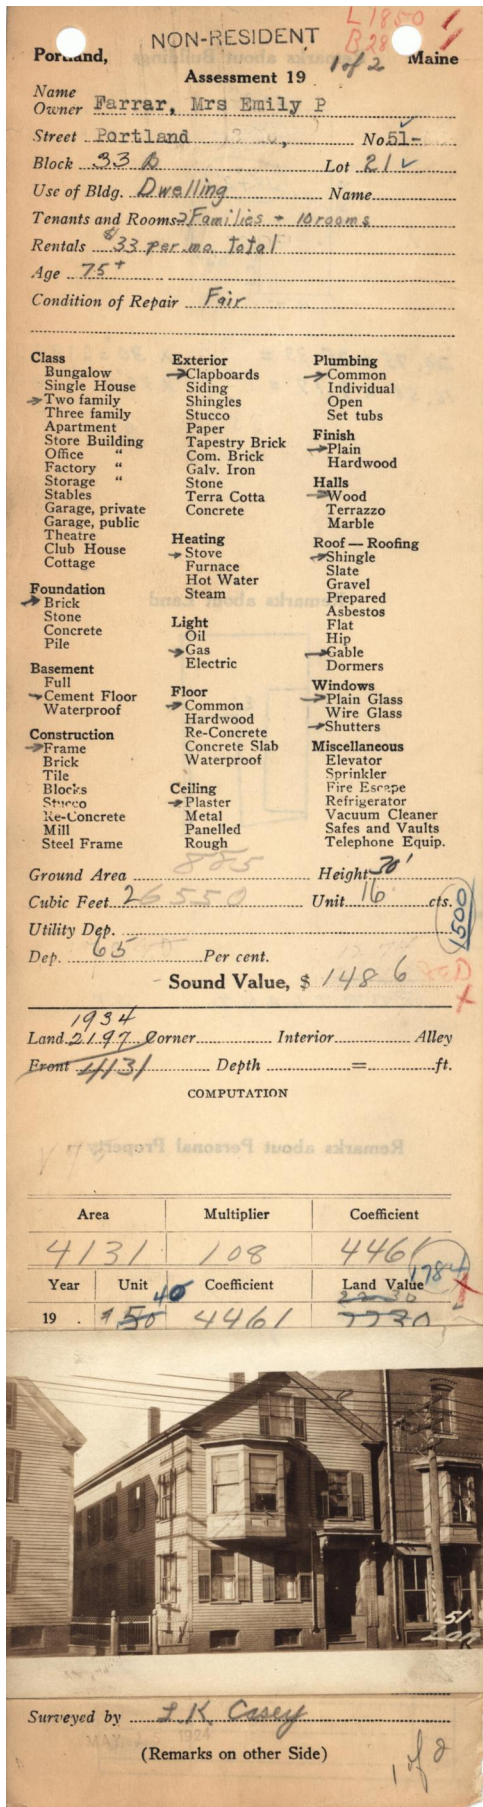 L1850 1
NON-RESIDENT
B28 1
Portland, 1 of 2 Maine
Assessment 19
Name
Owner Farrar, Mrs Emily P
Street Portland , No. 51-
Block 33 B Lot 21
Use of Bldg. Dwelling Name
Tenants and Rooms 2 Families + 10 rooms
Rentals $33 per mo total
Age 75+
Condition of Repair Fair
Class
Bungalow
Single House
Two family
Three family
Apartment
Store Building
Office "
Factory "
Storage "
Stables
Garage, private
Garage, public
Theatre
Club House
Cottage
Foundation
Brick
Stone
Concrete
Pile
Basement
Full
Cement Floor
Waterproof
Construction
Frame
Brick
Tile
Blocks
Stucco
Re-Concrete
Mill
Steel Frame
Exterior
Clapboards
Siding
Shingles
Stucco
Paper
Tapestry Brick
Com. Brick
Galv. Iron
Stone
Terra Cotta
Concrete
Heating
Stove
Furnace
Hot Water
Steam
Light
Oil
Gas
Electric
Floor
Common
Hardwood
Re-Concrete
Concrete Slab
Waterproof
Ceiling
Plaster
Metal
Panelled
Rough
Plumbing
Common
Individual
Open
Set tubs
Finish
Plain
Hardwood
Halls
Wood
Terrazzo
Marble
Roof — Roofing
Shingle
Slate
Gravel
Prepared
Asbestos
Flat
Hip
Gable
Dormers
Windows
Plain Glass
Wire Glass
Shutters
Miscellaneous
Elevator
Sprinkler
Fire Escape
Refrigerator
Vacuum Cleaner
Safes and Vaults
Telephone Equip.
Ground Area 885 Height 30'
Cubic Feet 26550 Unit 16 cts.
1500
Utility Dep.
Dep. 65 Per cent.
Sound Value, $ 1486
1934
Land 2197 Corner Interior Alley
Front 4131 Depth = ft.
COMPUTATION
Remarks about Personal Property
Area Multiplier Coefficient
4131 108 4461
1784
Year Unit Coefficient Land Value
40 2230
19 . $50 4461 2230
51
Surveyed by L.K. Casey
1924
(Remarks on other Side)
1 of 2